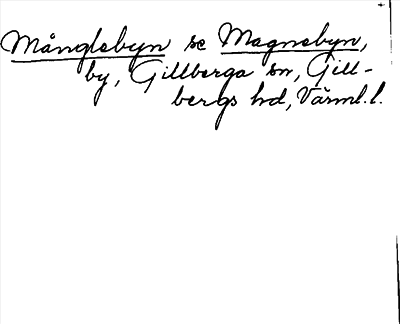 Månglebyn se Magnebyn,
by, Gillberga sn, Gill-
bergs hd, Värml. l.